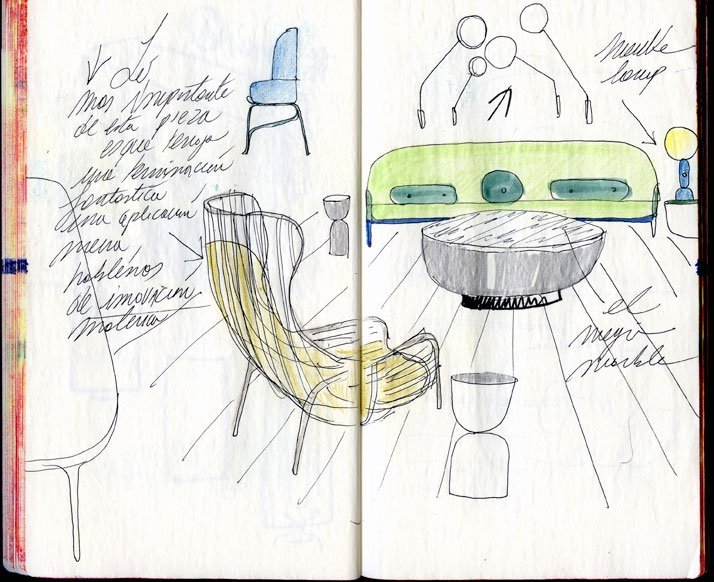 Lo
mas importante
de esta pieza
es que tenga
una terminación
fantastica
una aplicación
nueva,
hablemos
de innovación
moterial
lamp
el
mejor
marble